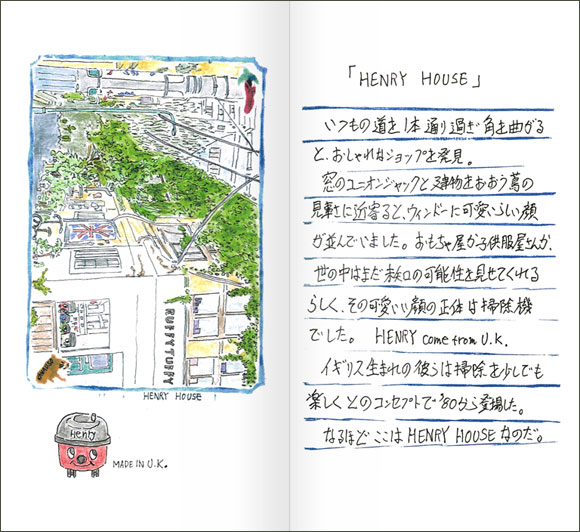 RUFFYTUFFY
HENRY HOUSE
Henry
MADE IN U.K.
「HENRY HOUSE」
いつもの道を1本通り過ぎ角を曲がる
と、おしゃれなショップを発見。
窓のユニオンジャックと建物をおおう蔦の
見事さに近寄ると、ウィンドーに可愛いらしい顔
が並んでいました。おもちゃ屋か子供服屋さんか、
世の中はまだ未知の可能性を見せてくれる
らしく、その可愛いい顔の正体は掃除機
でした。 HENRY come from U.K.
イギリス生まれの彼らは掃除を少しでも
楽しくとのコンセプトで'80から登場した。
なるほどここはHENRY HOUSEなのだ。